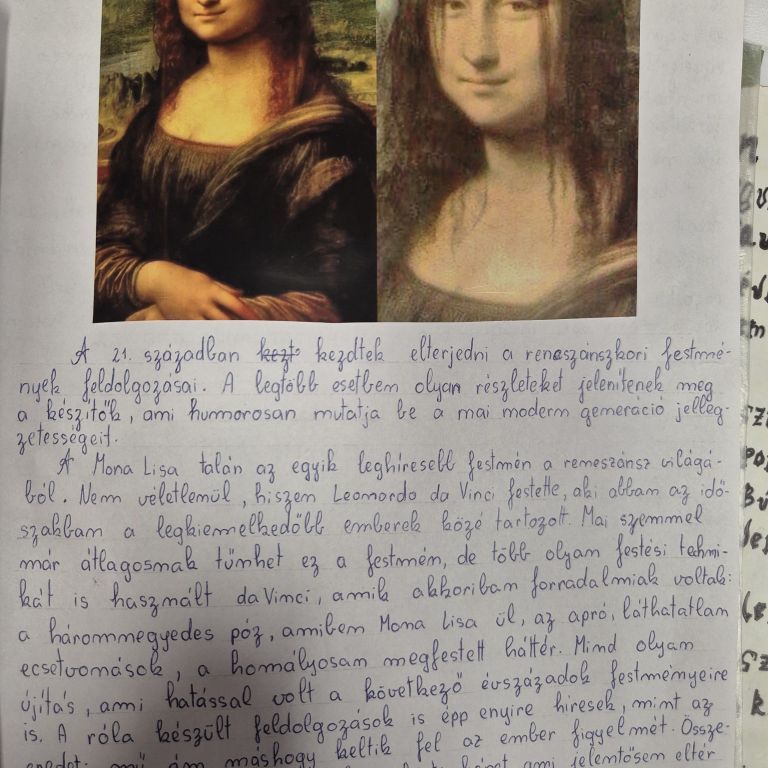 A 21. században kezt kezdtek elterjedni a reneszánszkori festmé-
nyek feldolgozásai. A legtöbb esetben olyan részleteket jelenítenek meg
a készítők, ami humorosan mutatja be a mai modern generáció jelleg-
zetességeit.
A Mona Lisa talán az egyik leghíresebb festmén a reneszánsz világá-
ból. Nem véletlenül, hiszen Leonardo da Vinci festette, aki abban az idő-
szakban a legkiemelkedőbb emberek közé tartozott. Mai szemmel
már átlagosnak tűnhet ez a festmén, de több olyan festési techni-
kát is használt da Vinci, amik akkoriban forradalmiak voltak:
a háromnegyedes póz, amiben Mona Lisa ül, az apró, láthatatlan
ecsetvonások, a homályosan megfestett háttér. Mind olyan
újítás, ami hatással volt a következő évszázadok festményeire
is. A róla készült feldolgozások is épp enyire híresek, mint az
mű, ám máshogy keltik fel az ember figyelmét. Össze-
képet, ami jelentősen eltér